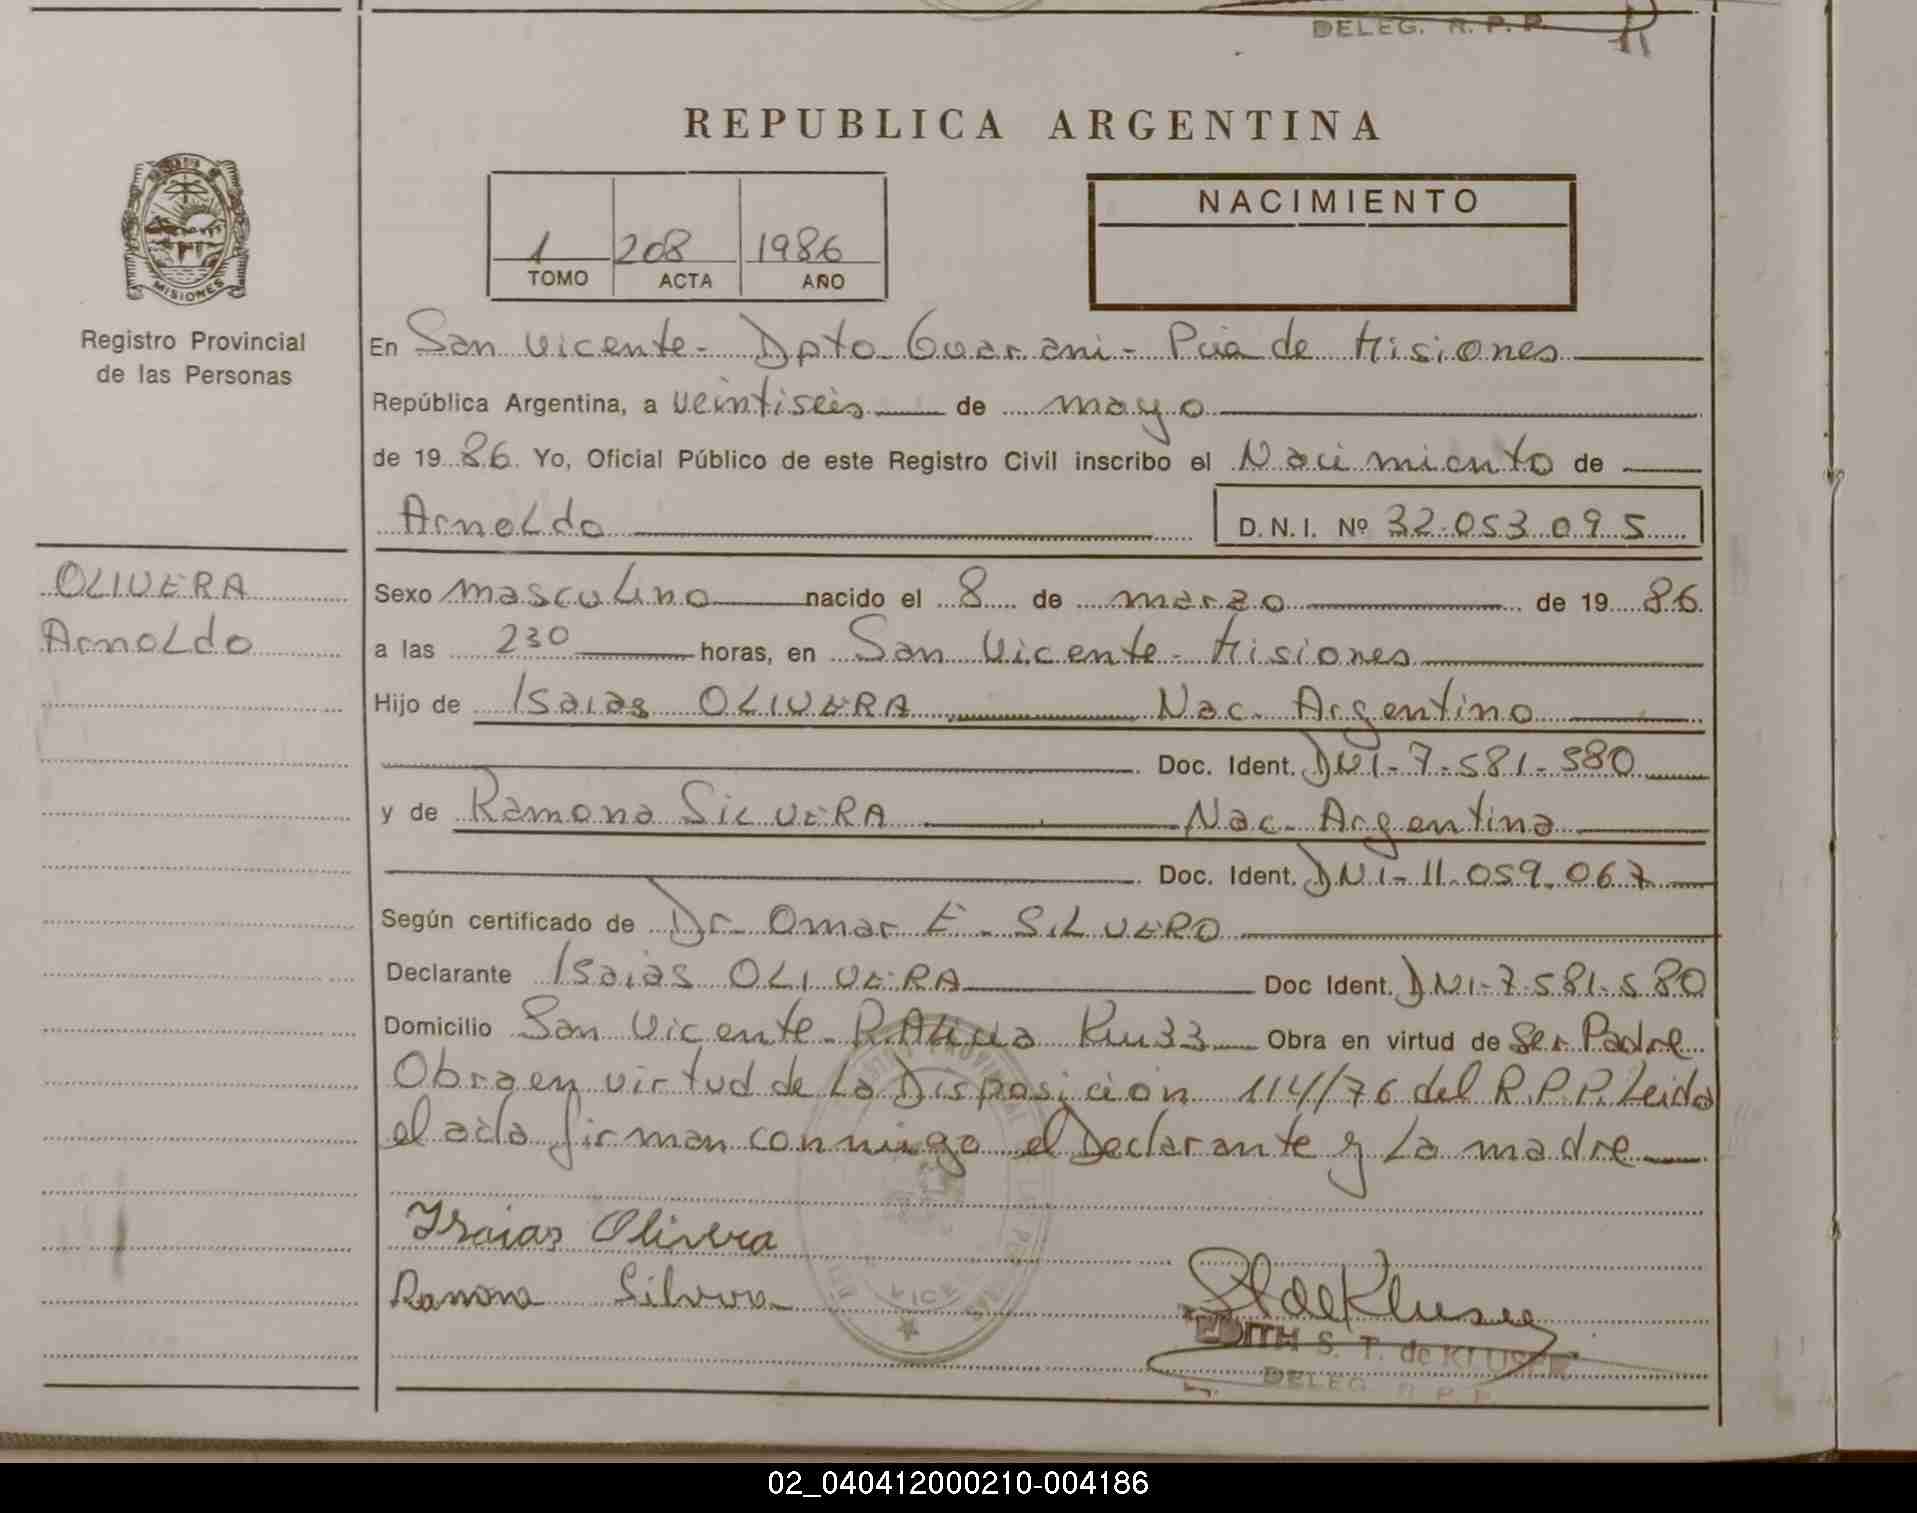 DELEG. R. P. P.
REPUBLICA ARGENTINA
MISIONES
Registro Provincial
de las Personas
1 208 1986
TOMO ACTA AÑO
NACIMIENTO
En San Vicente - Dpto Guarani - Pcia de Misiones
República Argentina, a veintiseis de mayo
de 19 86. Yo, Oficial Público de este Registro Civil inscribo el Nacimiento de
Arnoldo D.N.I. Nº 32.053.095
OLIVERA
Arnoldo
Sexo masculino nacido el 8 de marzo de 19 86
a las 230 horas, en San Vicente - Misiones
Hijo de Isaias OLIVERA Nac. Argentino
Doc. Ident. DNI-7-581-580
y de Ramona SILVERA Nac. Argentina
Doc. Ident. DNI-11.059.067
Según certificado de Dr. Omar E. SILVERO
Declarante Isaias OLIVERA Doc Ident. DNI-7-581-580
Domicilio San Vicente - R. Alicia Km 33 Obra en virtud de Ser Padre
Obra en virtud de La Disposición 114/76 del R.P.P. Leida
el acta firman conmigo el Declarante y La madre
Isaias Olivera
Ramona Silvera
EDITH S. T. de KLUSE
DELEG. R. P. P.
02_040412000210-004186